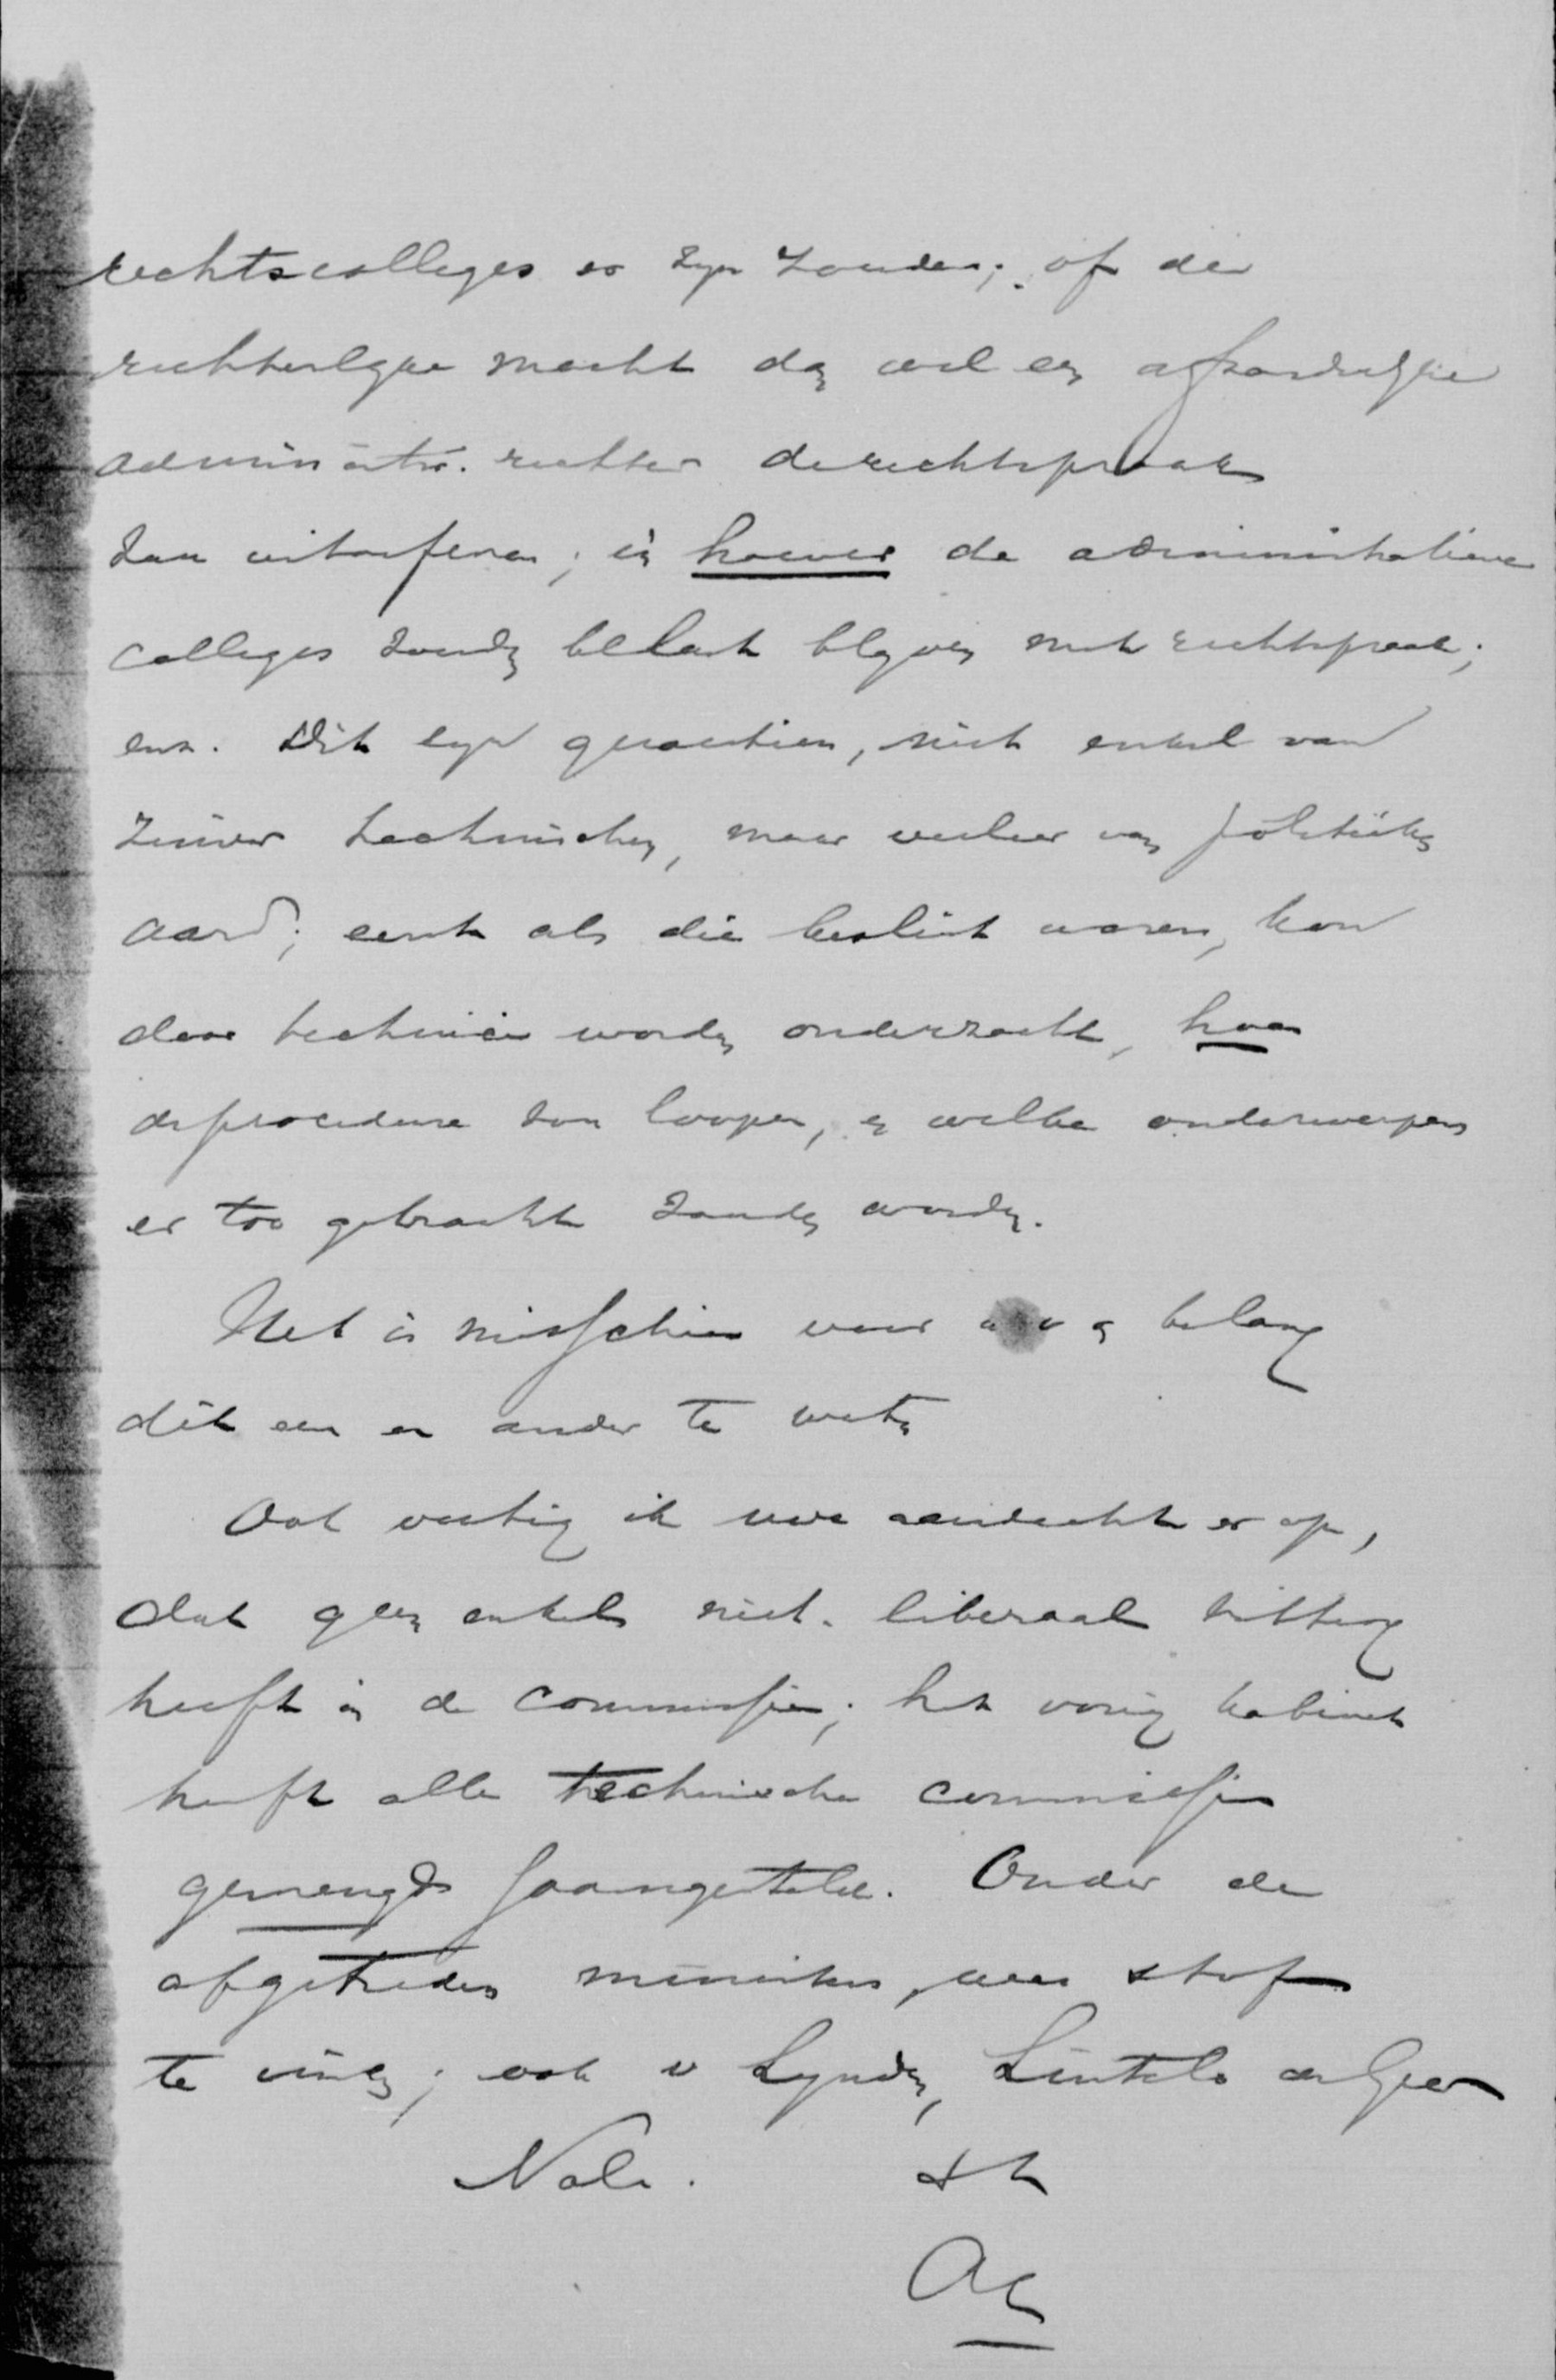 rechtscolleges er zyn zouden; of de
rechterlyke macht dan wel een afzonderlyke
administr. rechter de rechtspraak
zou uitoefenen; in hoever de administratieve
colleges zouden belast blyven met rechtspraak;
enz. Dit zyn quaestien, niet enkel van
zuiver technischen, maar veeleer van politieken
aard; eerst als die beslist waren, kon
door technici worden onderzocht, hoe
de procedure zou loopen, en welke onderwerpen
er toe gebracht zouden worden.
Het is misschien voor u v belang
dit een en ander te weten
Ook vestig ik uwe aandacht er op,
dat geen enkel niet-liberaal zitting
heeft in de commissie; het vorig kabinet
heeft alle technische commissies
gemengd saamgesteld. Onder de
afgetreden ministers, was stof
te vinden; ook v Lynden, Lintelo de Geer